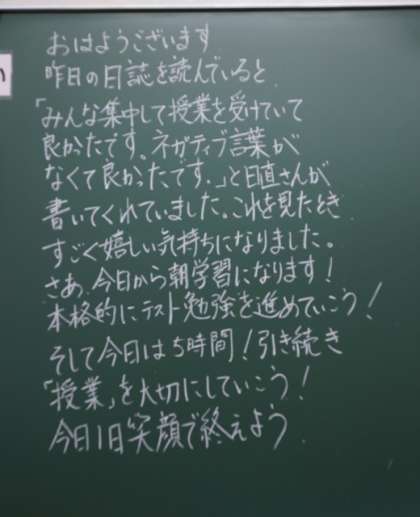 い
おはようございます
昨日の日誌を読んでいると、
「みんな集中して授業を受けていて
良かったです。ネガティブ言葉が
なくて良かったです。」と日直さんが
書いてくれていました。これを見たとき、
すごく嬉しい気持ちになりました。
さあ、今日から朝学習になります！
本格的にテスト勉強を進めていこう！
そして今日は5時間！引き続き
「授業」を大切にしていこう！
今日1日笑顔で終えよう